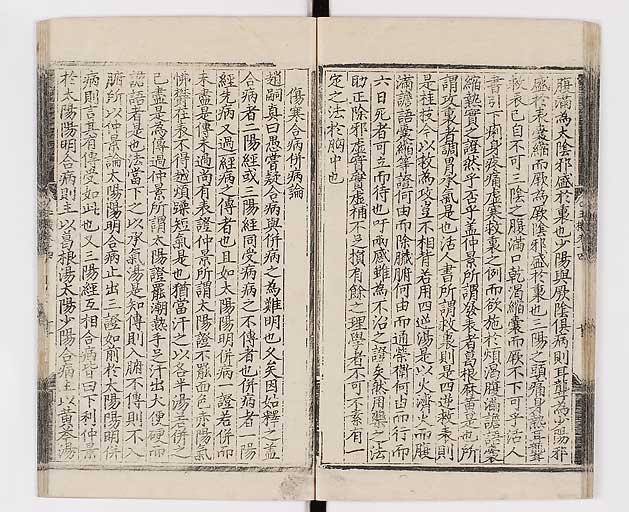 腹滿為太陰邪盛於裏也少陽與厥陰俱病則耳聾為少陽邪
盛於表囊縮而厥為厥陰邪盛於裏也三陽之頭痛身熱耳聾
救表已自不可三陰之腹滿口乾渴縮囊而厥不下可乎活人
書引下痢身疼痛虛寒救裏之例而欲施於煩渴腹滿譫語囊
縮熱實之證然乎否乎盖仲景所謂發表者葛根麻黃是也所
謂攻裏者調胃承氣是也活人書所謂救裏則是四逆救表則
是桂技今以救為攻豈不相背若用四逆湯是以火濟火而腹
滿譫語囊縮等證何由而除臟腑何由而通榮衛何由而行而
六日死者可立而待也吁兩感雖為不治之證矣然用藥之法
助正除邪虛實實虛補不足損有餘之理學者不可不素有一
定之法於胸中也
傷寒合病併病論
趙嗣真曰愚嘗疑合病與併病之為難明也久矣因始釋之盖
合病者二陽經或三陽經同受病病之不傳者也併病者一陽
經先病又過一經病之傳者也且如太陽陽明併病一證若併而
未盡是傳未過尚有表證仲景所謂太陽證不罷面色赤陽氣
怫欝在表不得越煩躁短氣是也猶當汗之以各半湯若併之
已盡是為傳過仲景所謂太陽證罷潮熱手足汗出大便硬而
譫語者是也法當下之以承氣湯是知傳則入腑不傳則不入
腑所以仲景論太陽陽明合病止出三證如前於太陽陽明併
病則言其有傳受如此也又三陽經互相合病皆曰下利仲景
於太陽陽明合病則主以葛根湯太陽少陽合病主以黃芩湯